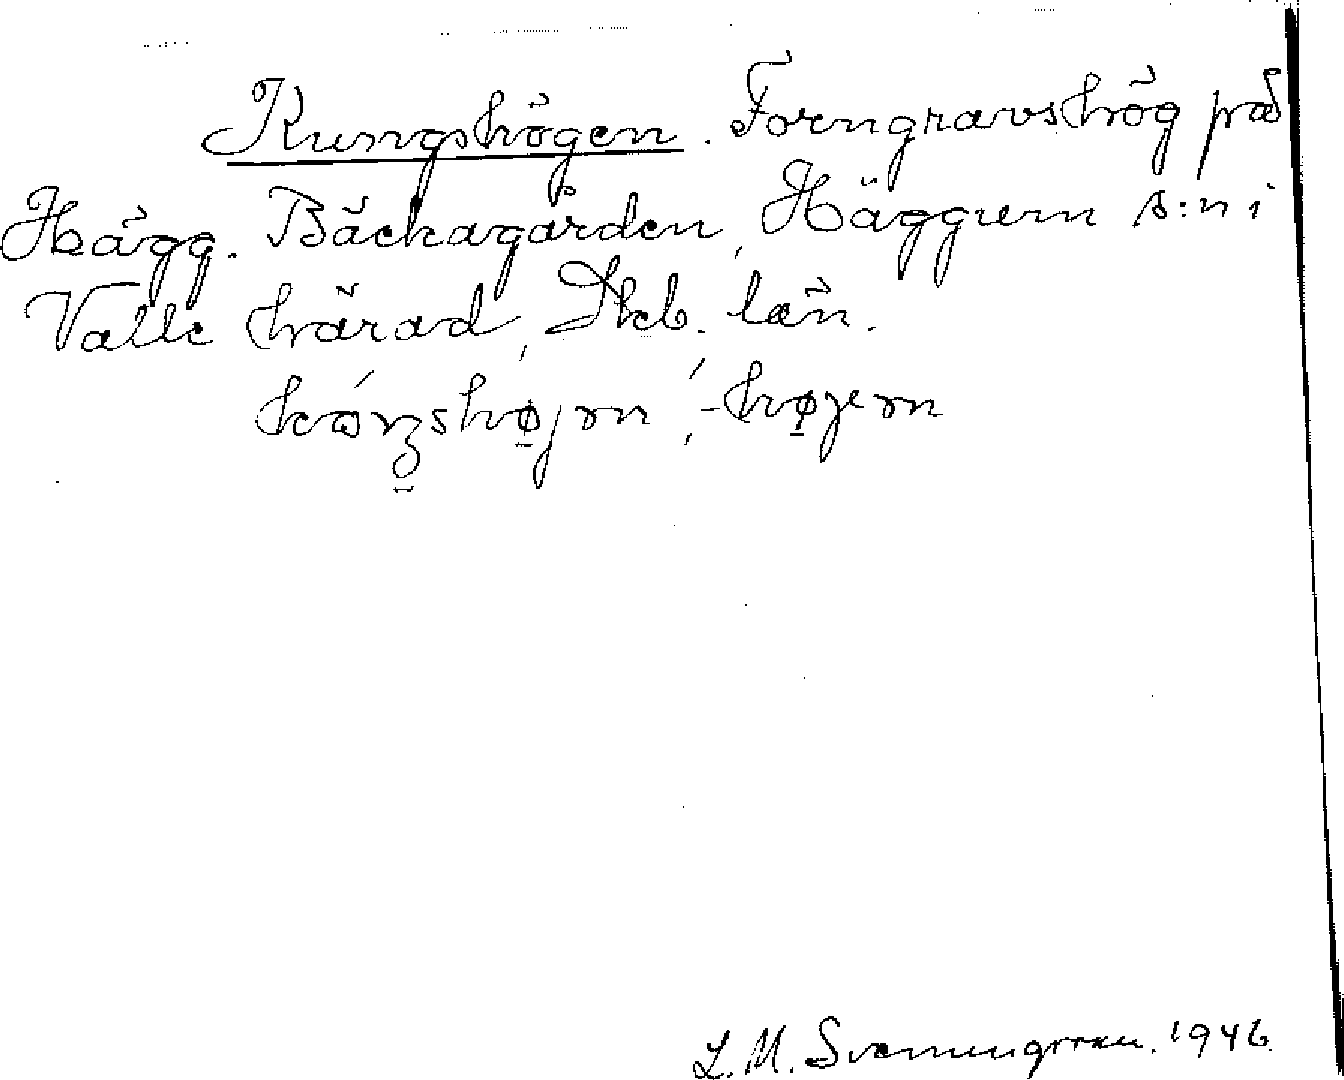 Kungshögen. Forngravshög på
Hägg. Bäckagården, Häggum s:n i
Valle härad, Skb. län.
L. M. Svenungsson. 1946.